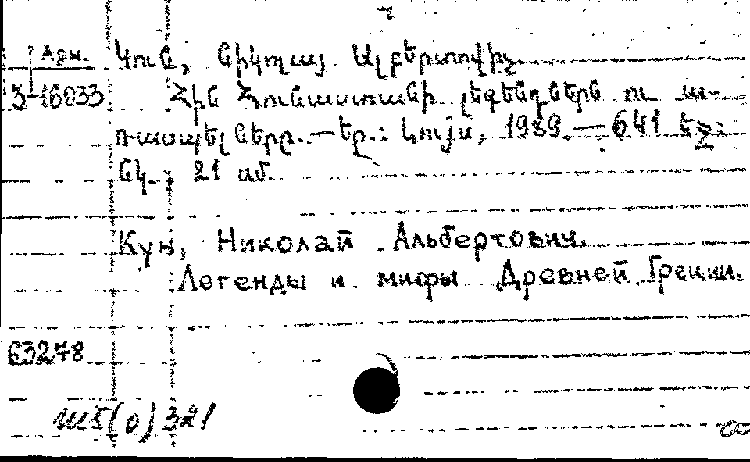 Արմ. Կուն, Նիկոլայ Ալբերտովիչ.
3-16033 Հին Հունաստանի լեգենդներն ու ա-
ռասպելները.—Եր.: Լույս, 1989.—641 էջ:
նկ. 21 սմ.
Кун, Николай Альбертович.
Легенды и мифы Древней Греции.
63278
Ш5(0)321